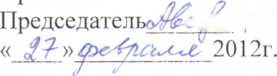 Председатель
« 27 » февраля 2012г.